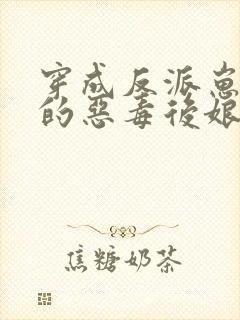 穿成反派崽
的惡毒後娘
焦糖奶茶